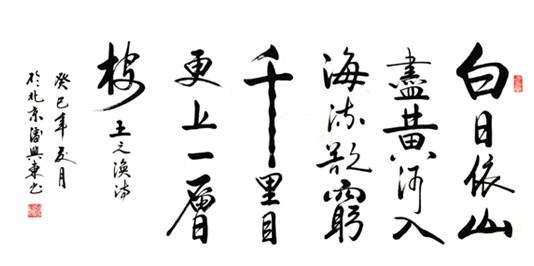 白日依山
盡黄河入
海流欲窮
千里目
更上一層
楼 王之渙诗
癸巳年夏月
於北京潘興東书